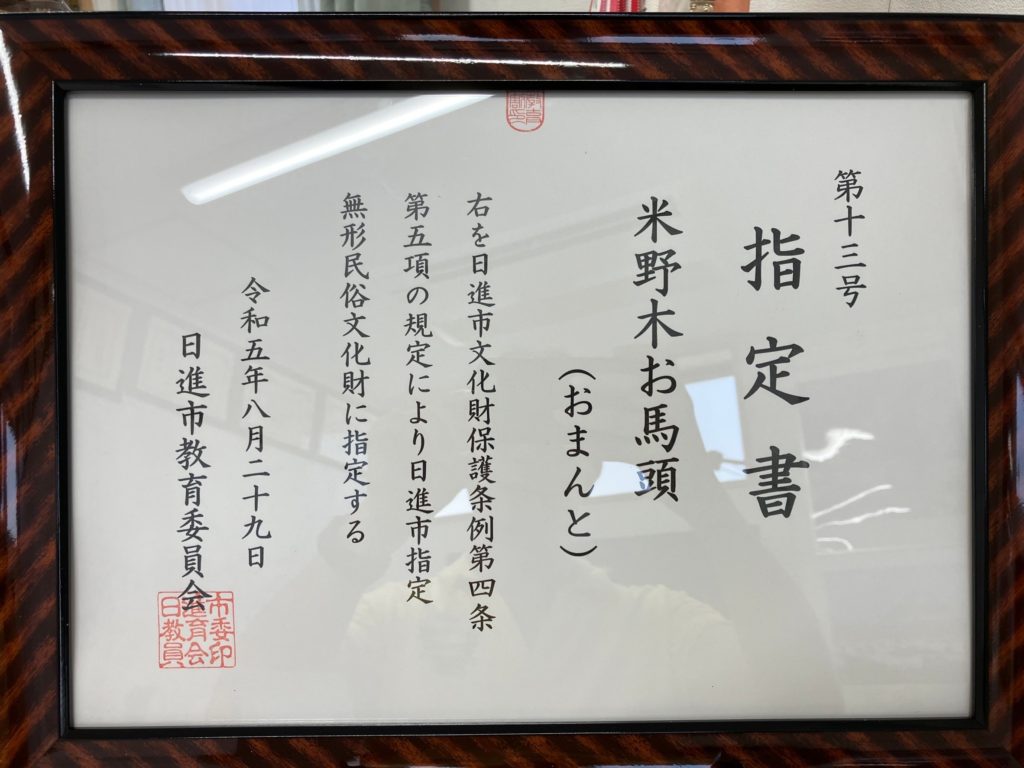 第十三号
指定書
米野木お馬頭
(おまんと)
右を日進市文化財保護条例第四条
第五項の規定により日進市指定
無形民俗文化財に指定する
令和五年八月二十九日
日進市教育委員会
市委印
進育会
日教員